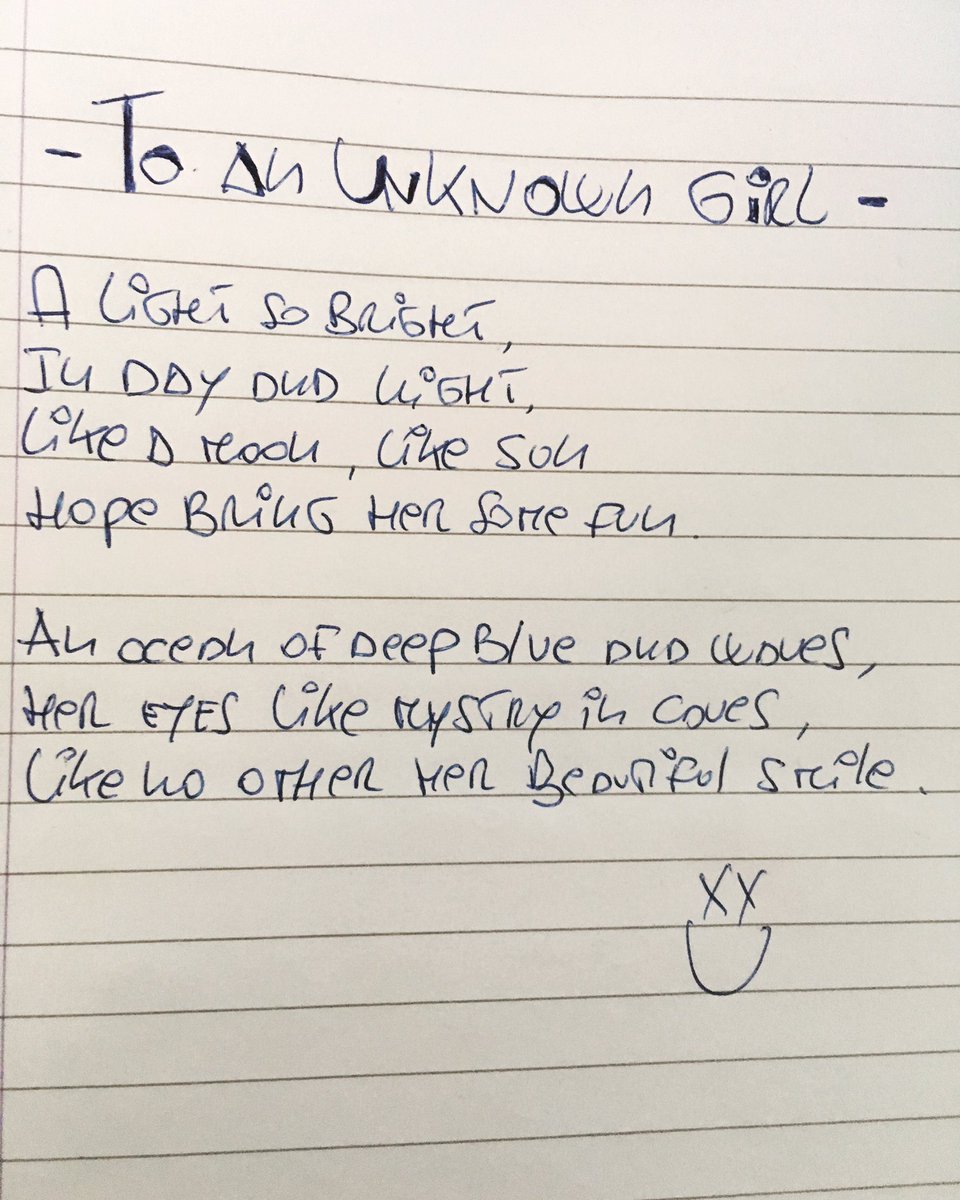 - To An Unknown Girl -
A light so bright,
In day and night,
Like a moon, like sun
Hope bring her some fun.
An ocean of deep blue and waves,
Her eyes like mystry in coves,
Like no other her beautiful smile.
XX